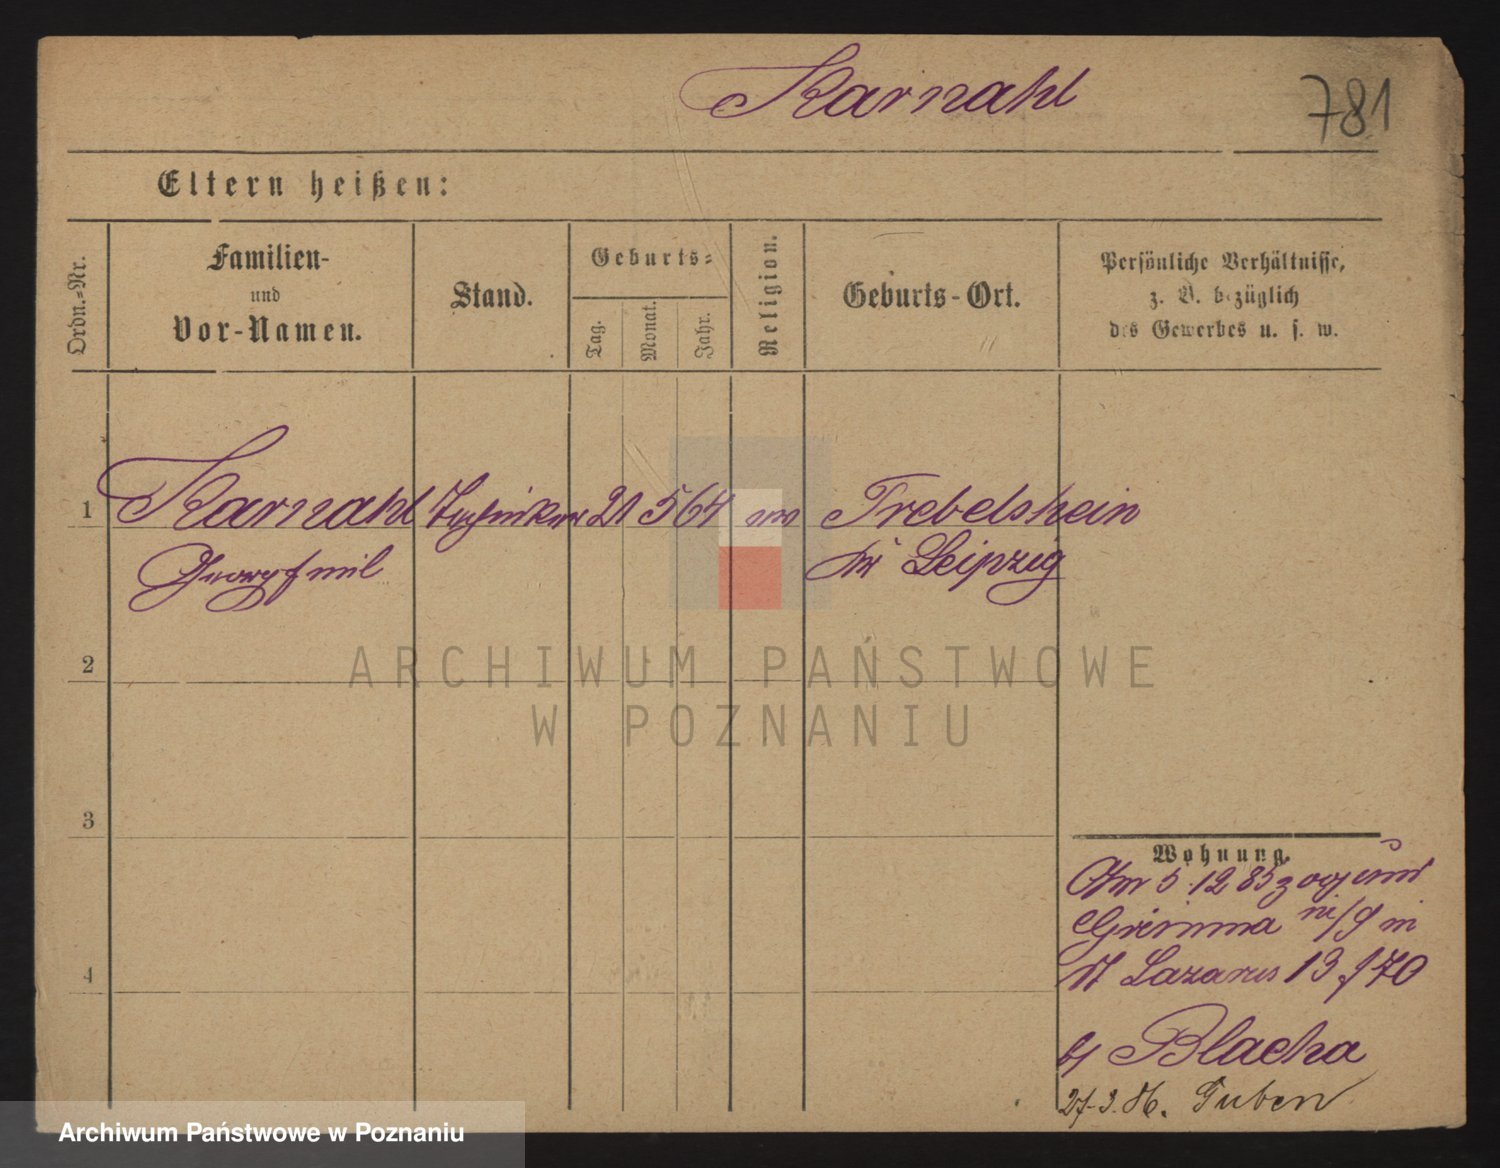 Karnahl
781
Eltern heißen:
Ordn.=Nr.
Familien-
und
Vor-Namen.
Stand.
Geburts=
Tag.
Monat.
Jahr.
Religion.
Geburts-Ort.
Persönliche Verhältnisse,
z. B. bezüglich
des Gewerbes u. s. w.
1
Karnahl Techniker 21 5 64 Trebelshein
Leipzig
2
ARCHIWUM PAŃSTWOWE
W POZNANIU
3
Wohnung.
Am 5 12 85 zog
Grimma in
St Lazarus 13 f 70
4
Blacha
27-3. 86. Guben
Archiwum Państwowe w Poznaniu